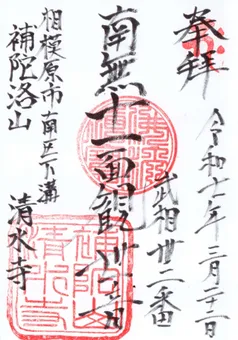 奉拝
令和七年三月二十二日
武相卅二番
南無十一面観世音
相模原市南区下溝
補陀洛山
清水寺